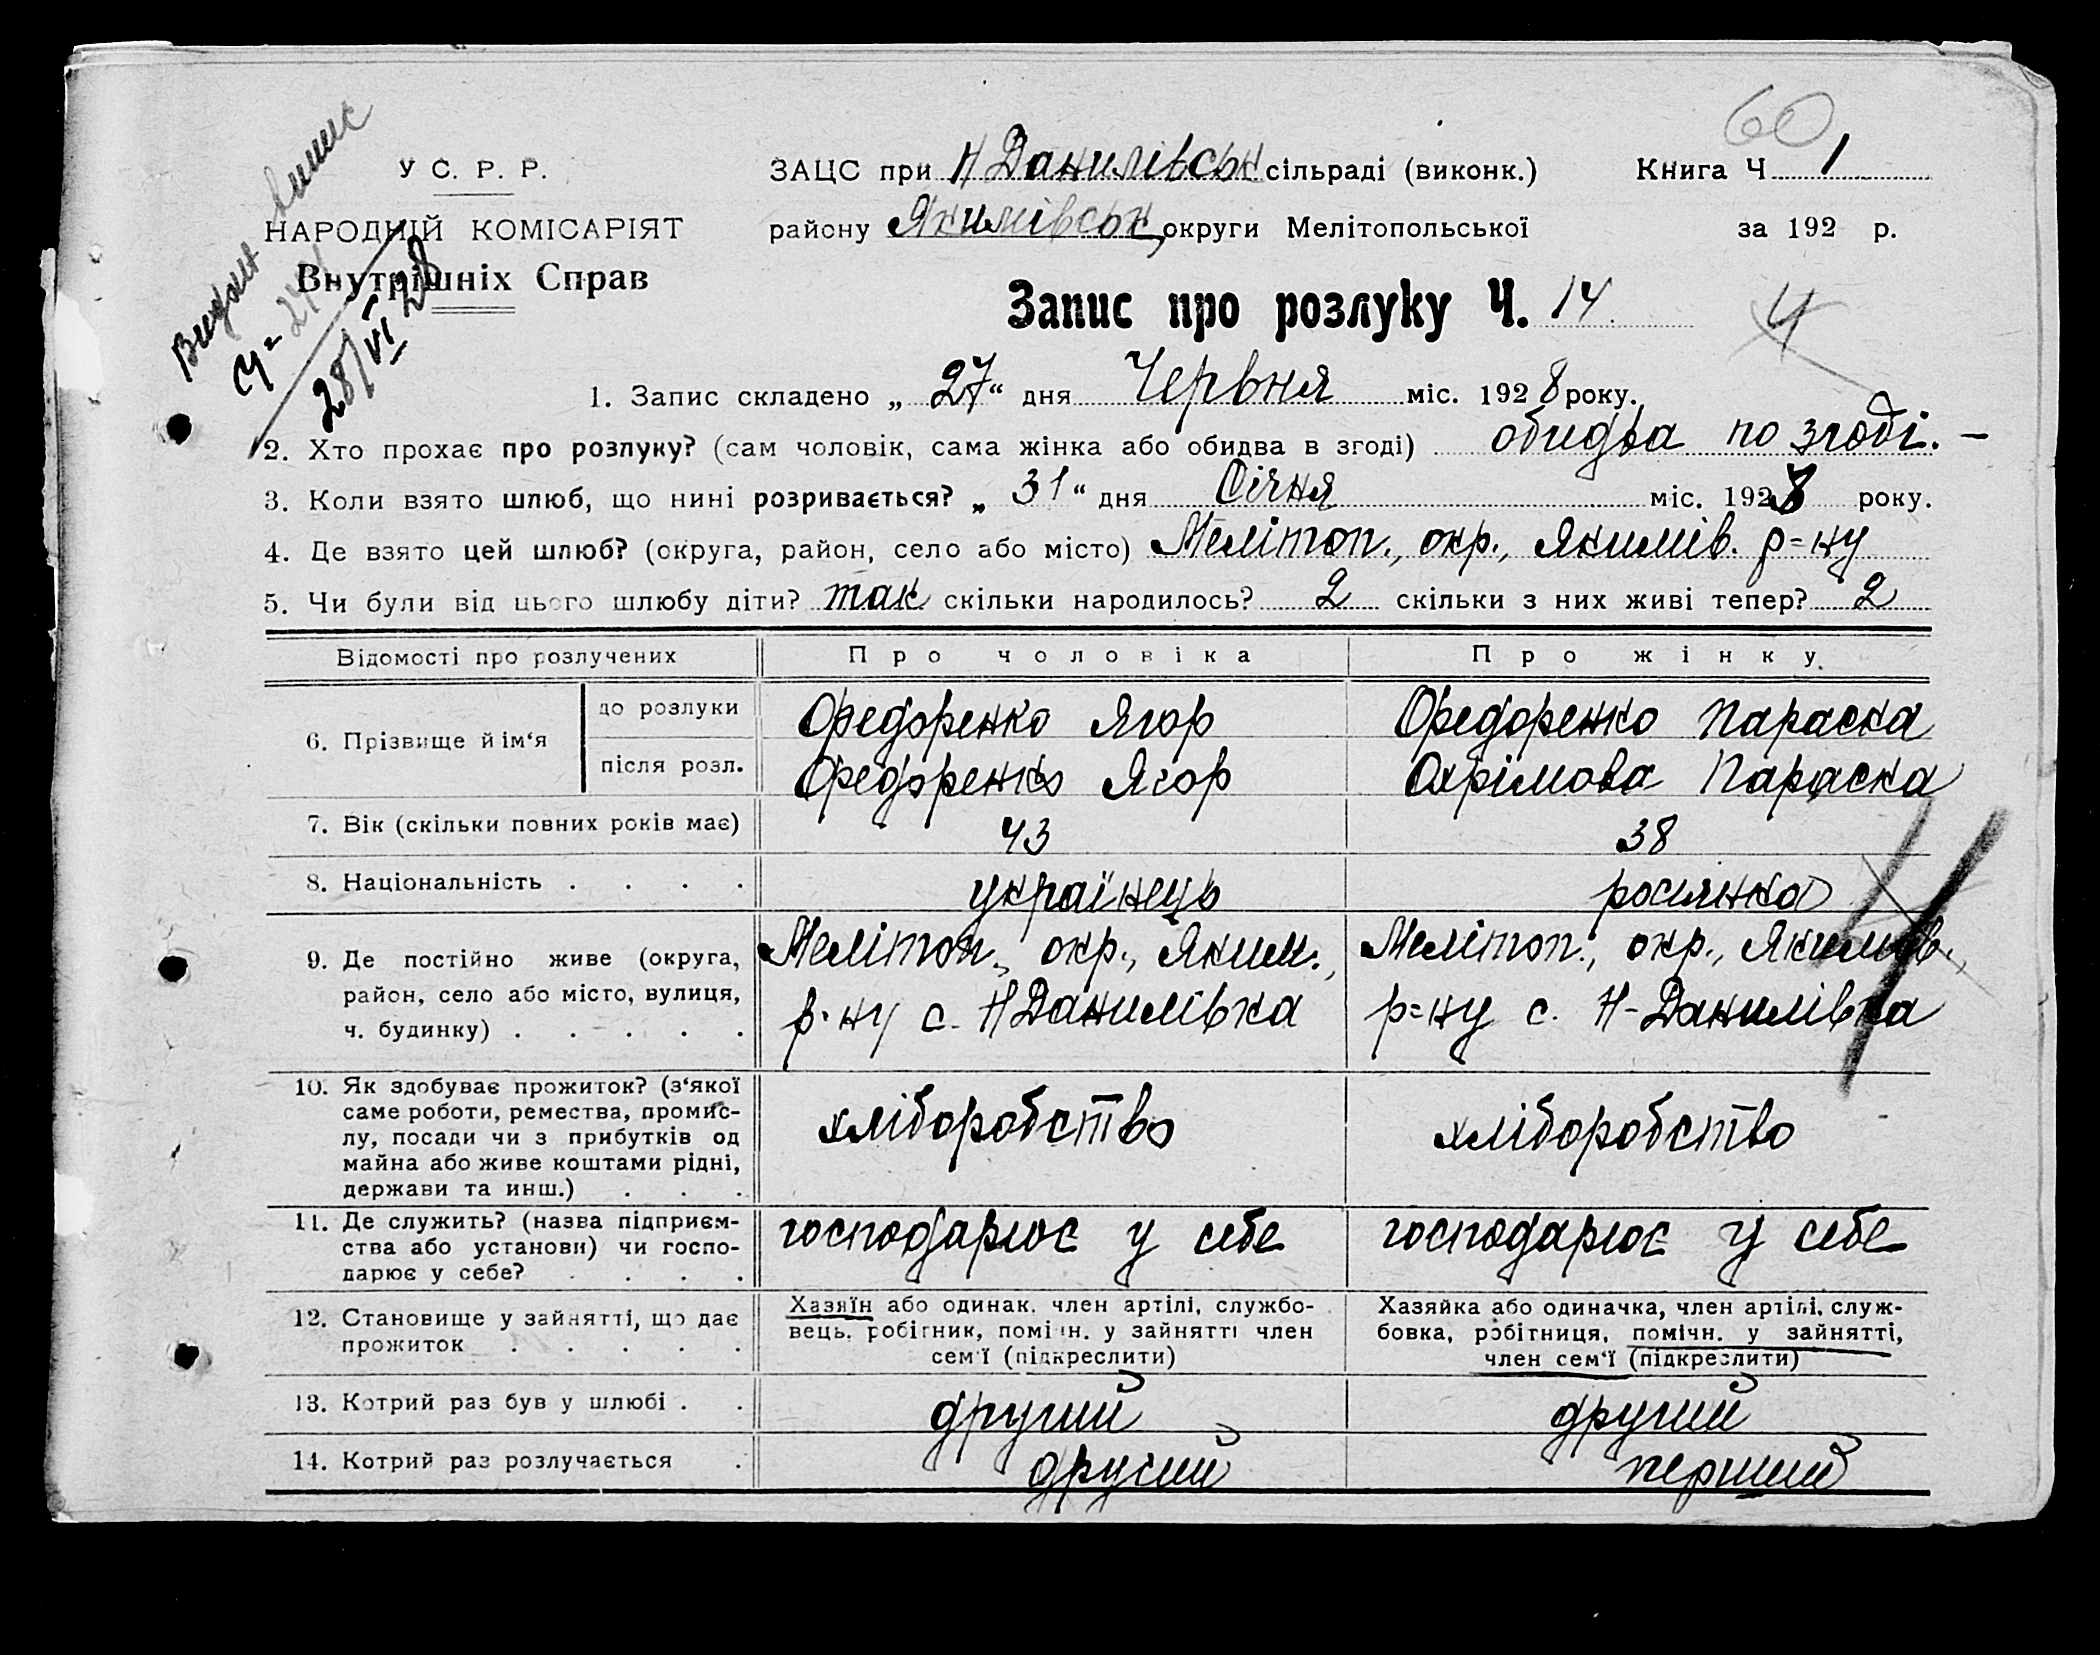 60
Видан випис
Ч=
28/VI 28
У С. Р. Р.
НАРОДНІЙ КОМІСАРІЯТ
Внутрішніх Справ
ЗАЦС при Н Данилівськ сільраді (виконк.)
Книга Ч 1
району Якимівськ, округи Мелітопольської
за 192 р.
Запис про розлуку Ч. 14
4
1. Запис складено „ 27 “ дня Червня міс. 1928 року.
2. Хто прохає про розлуку? (сам чоловік, сама жінка або обидва в згоді) обидва по згоді. –
3. Коли взято шлюб, що нині розривається? „ 31 “ дня Січня міс. 1928 року.
4. Де взято цей шлюб? (округа, район, село або місто) Меліт­оп., окр., Якимів. р=ну
5. Чи були від цього шлюбу діти? так скільки народилось? 2 скільки з них живі тепер? 2
Відомості про розлучених
Про чоловіка
Про жінку
6. Прізвище й ім‘я
до розлуки
Федоренко Ягор
Федоренко Параска
після розл.
Федоренко Ягор
Охрімова Параска
7. Вік (скільки повних років має)
43
38
8. Національність . . . .
українець
росиянка
9. Де постійно живе (округа,
район, село або місто, вулиця,
ч. будинку) . . . . .
Мелітоп., окр., Яким.,
р-ну с. Н Данилівка
Мелітоп., окр., Якимів.,
р=ну с. Н-Данилівка
10. Як здобуває прожиток? (з‘якої
саме роботи, ремества, промис-
лу, посади чи з прибутків од
майна або живе коштами рідні,
держави та инш.) . . .
хліборобство
хліборобство
11. Де служить? (назва підприєм-
ства або установи) чи госпо-
дарює у себе? . . . .
господарює у себе
господарює у себе
12. Становище у зайнятті, що дає
прожиток . . . . .
Хазяїн або одинак, член артілі, службо-
вець, робітник, помічн. у зайнятті член
сем‘ї (підкреслити)
Хазяйка або одиначка, член артілі, служ-
бовка, робітниця, помічн. у зайнятті,
член сем‘ї (підкреслити)
13. Котрий раз був у шлюбі . .
другий
другий
14. Котрий раз розлучається .
другий
перший